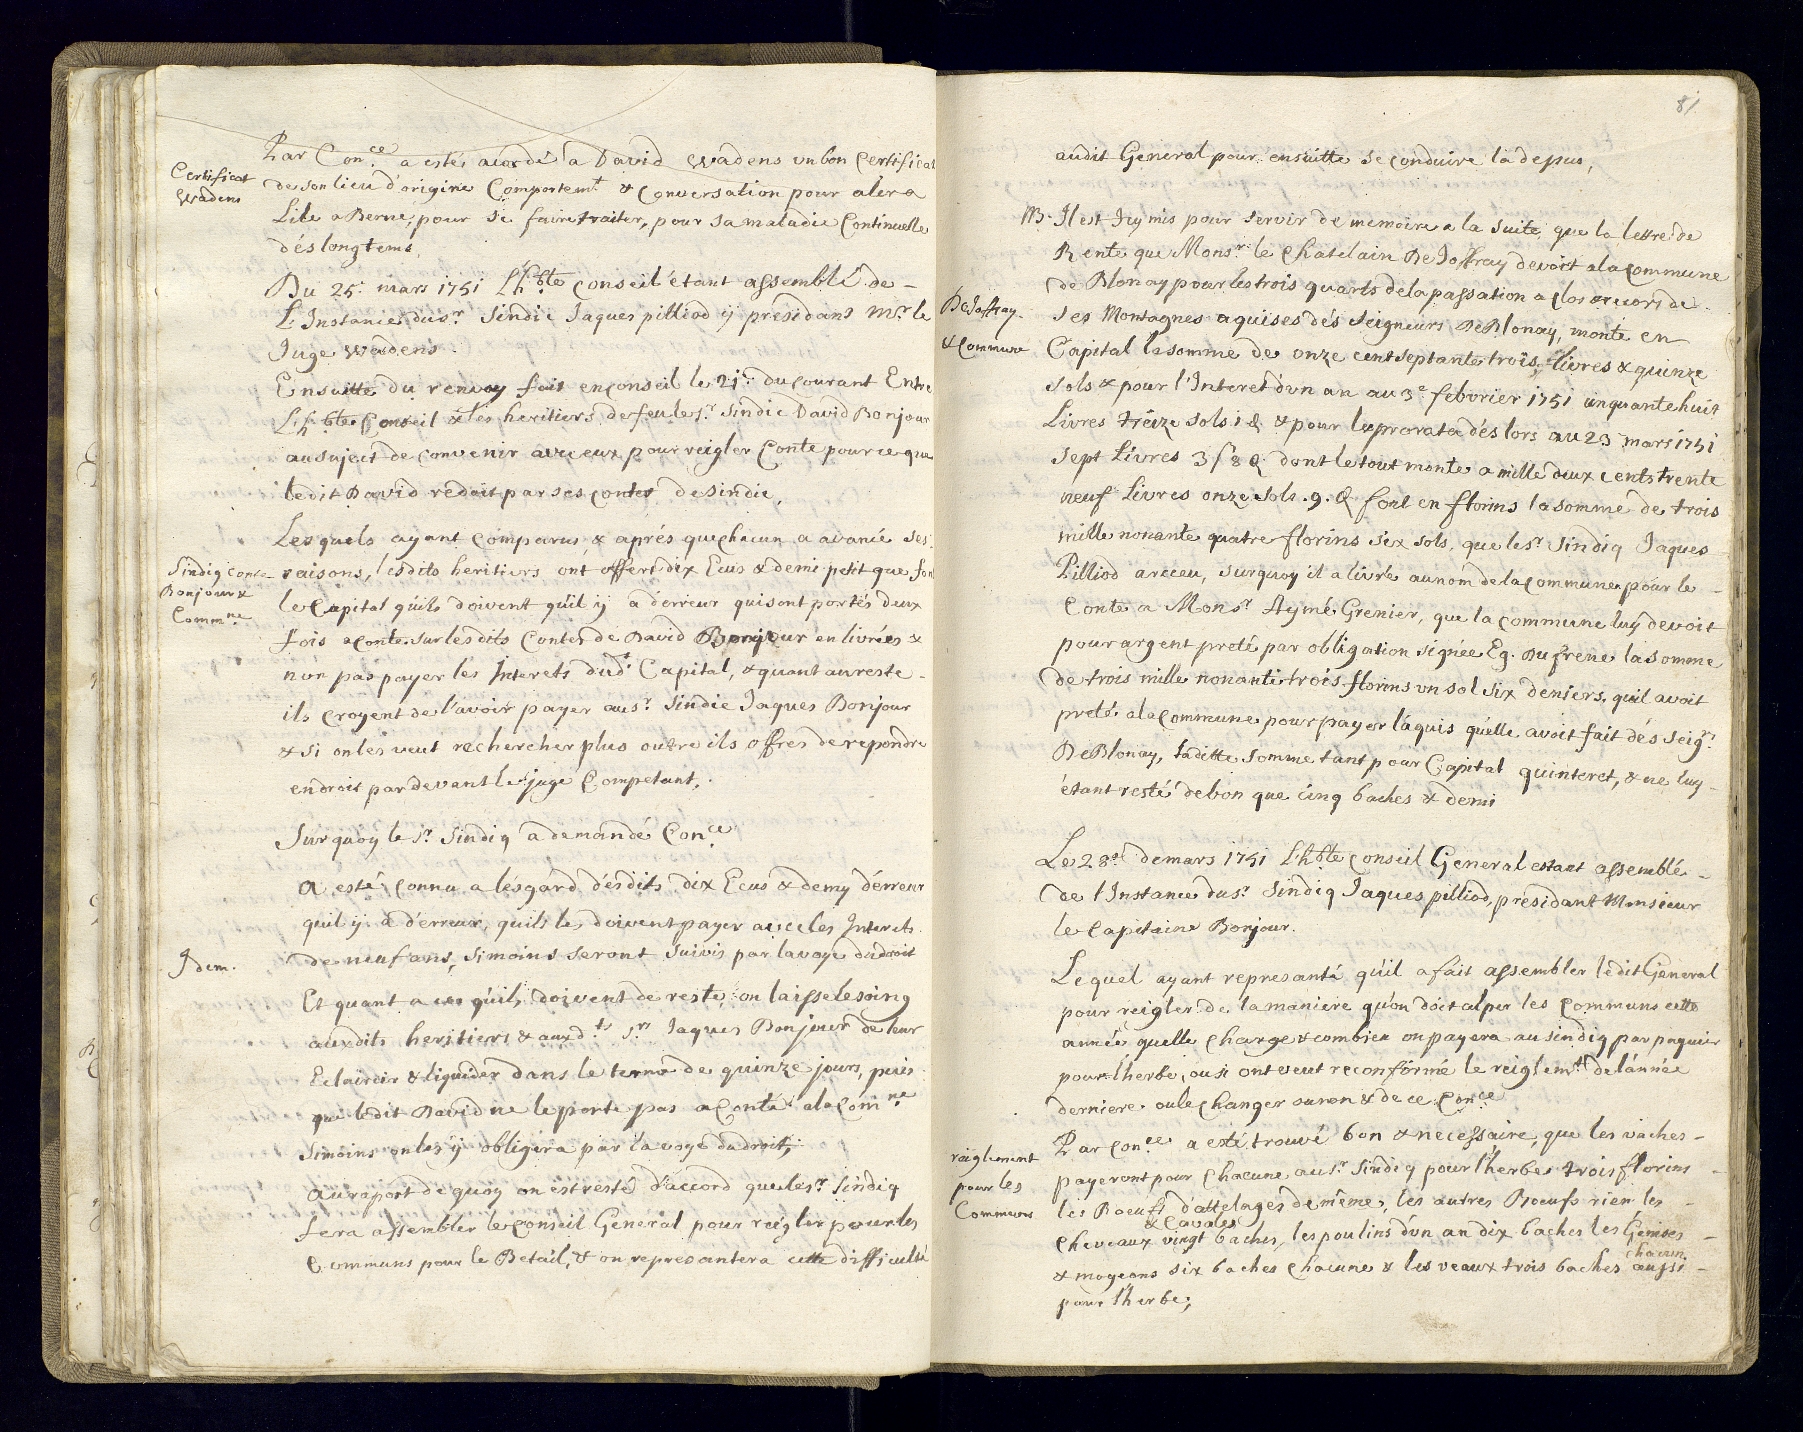 Par Con.ce a estés acordé a David Wadens un bon Certificat
Certificat
Wadens
de son lieu d'origine Comportemt & Conversation pour aler a
Lile a Berne, pour se faire traiter, pour sa maladie Continuelle
dés longtems.
Du 25: mars 1751 L'h.ble Conseil étant assemblé de
L'Instance du sr. Sindic Jaques pilliod ÿ présidant Mr. le
Juge Wadens.
Ensuitte du renvoy fait en Conseil le 21e. du courant Entre
L'h.ble Conseil & les heritiers de feu le sr. Sindic David Bonjour
au suject de convenir avec eux pour reigler Conte pour ce que
ledit David redoit par ses contes de sindic,
Les quels ayant comparus, & aprés que chacun a avancé ses
Sindiq contre
Bonjour &
Comm.ne
raisons, lesdits heritiers ont offert dix Ecus & demi petit que font
le Capital qu'ils doivent qu'il ÿ a d'erreur qui sont portés deux
fois a conte sur lesdits Contes de David Bonjour en livrées &
non pas payer les Interets dud.t Capital, & quant au reste
ils croyent de l'avoir payer au sr. Sindic Jaques Bonjour
& si on les veut rechercher plus outre ils offres de repondre
en droit par devant le juge Competant.
Sur quoy le sr. Sindiq a demandé Con.ce
A esté connu a lésgard désdits dix Ecus & demy d'erreur
qu'il ÿ a d'erreur, qu'ils les doivent payer avec les Interets
Idem.
de neuf ans, simoins seront suivis par la voye du droit
Et quant a ces qu'ils doivent de reste, on laisse le soing
auxdits heritiers & aux d.ts srs Jaques Bonjour de leur
Eclaircir & liquider dans le terme de quinze jours, puis
que ledit David ne le porte pas a Conte a la Comne
Simoins on les ÿ obligera par la voye du droit,
Au raport de quoy on est resté d'accord que le sr. Sindiq
fera assembler le Conseil General pour reigler pour les
Communs pour le Betail, & on represantera cette difficulté
81
audit General pour ensuitte se conduire la depus,
NB. Il est Icy mis pour servir de memoire a la suite, que la lettre de
Rente que Monsr. le Chatelain De Joffray devoit a la commune
de Blonay pour les trois quarts de la passation a clos
De Joffray
& Commune
ses Montagnes aquises dés Seigneurs De Blonay, monte en
Capital la somme de onze cent septante trois livres & quinze
sols & pour l'Interet d'vn an au 3e febvrier 1751 cinquante huit
Livres treize sols 1 & pour le prorata dés lors au 23 mars 1751
Sept Livres 3 s 8 d dont le tout monte a mille deux cents trente
neuf Livres onze sols .9. d font en florins la somme de trois
mille nonante quatre florins six sols, que le sr. Sindiq Jaques
Pilliod a receu, sur quoy il a livré au nom de la commune pour le
Conte a Monsr. Aymé Grenier, que la commune luÿ devoit
pour argent preté par obligation signée Eg. Dufrene la somme
de trois mille nonante trois florins vn sol six deniers, quil avoit
preté a la Commune pour payer láquis qu'elle avoit fait dés Seigrs.
De Blonay, ladite somme tant pour Capital qu'interet, & ne luy
étant resté de bon que cinq baches & demi
Le 28e. de mars 1751 L'hble Conseil General estant assemblé
de l'Instance du sr. Sindiq Jaques pilliod, présidant Monsieur
le Capitaine Bonjour.
Lequel ayant represanté qu'il a fait assembler ledit General
pour reigler de la maniere qu'on doit alper les Communs cette
année quelle charge & combien on payera au sindiq par paquier
pour lherbe, ou si ont veut reconfórmé le reiglemt. de l'année
derniere. oule changer ou non & de ce Conce
Par Conce a esté trouvé bon & necessaire, que les vaches
raiglement
pour les
Communs
payeront pour chacune, au sr. Sindiq pour l'herbe trois florins
les Boeufs d'attelages de même, les autres Boeufs rien les
& Cavales
cheveaux vingt baches, les poulins d'vn an dix baches les Genises
& mogeons six baches chacune & les veaux trois baches aussi
chacun
pour l'herbe;